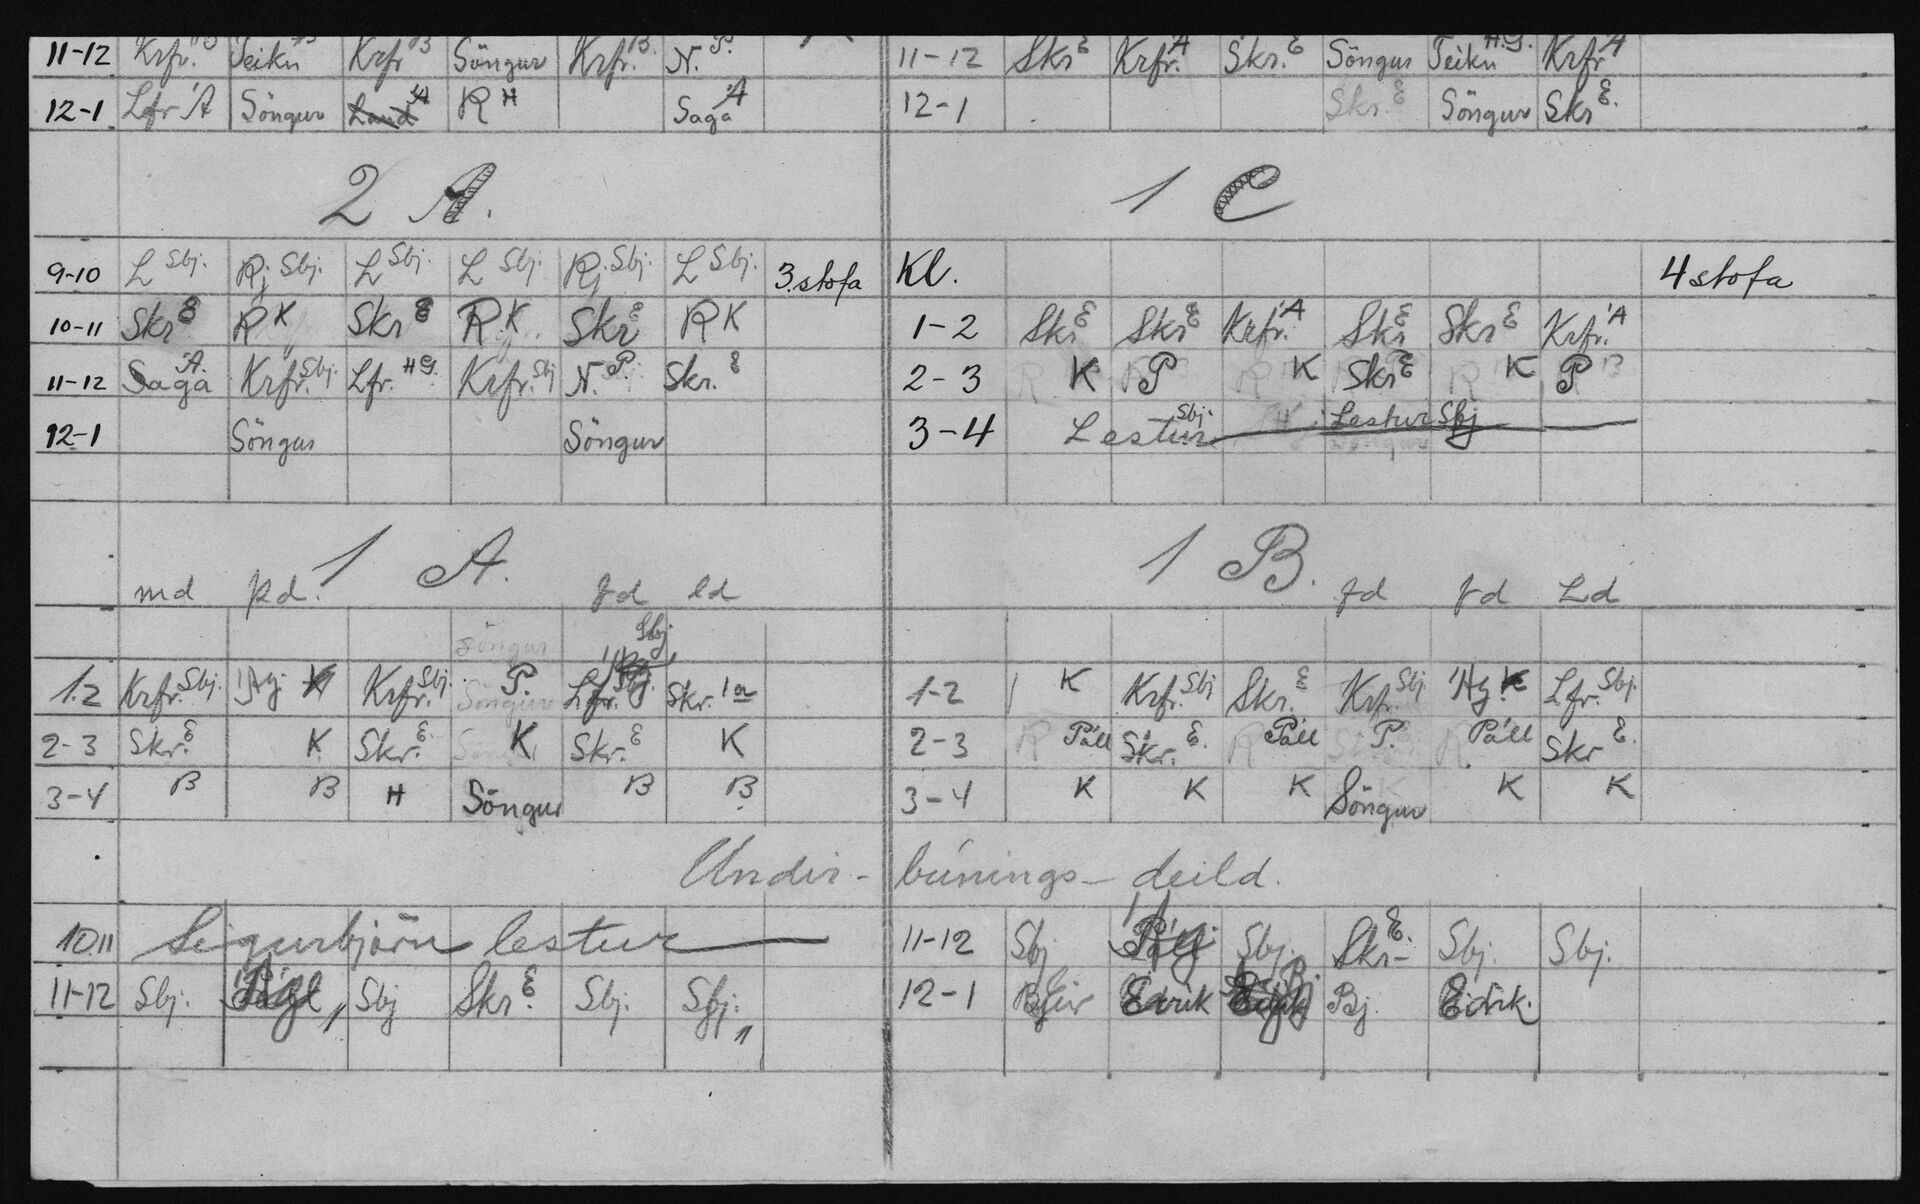 11-12 Krfr. B Teikn B Krfr B Söngur Krfr. B. N. P.
12-1 Lfr Á Söngur Land Á R H Saga Á
11-12 Skr E Krfr. Á Skr. E Söngur Teikn H.G. Krfr Á
12-1 Skr. E Söngur Skr E.
2 A.
9-10 L Sbj. Rj Sbj. L Sbj. L Sbj. Rj. Sbj. L Sbj. 3. stofa
10-11 Skr E R K Skr E R K Skr E R K
11-12 Saga Á. Krfr. Sbj. Lfr. H.G. Krfr. Sbj N. P. Skr. E
12-1 Söngur Söngur
1 C
Kl. 4 stofa
1-2 Skr E Skr E Krfr. Á Skr E Skr E Krfr. Á
2-3 R K P R K Skr E R K P B
3-4 Lestur Sbj. Lestur Sbj
1 A.
md þd. fd ld
Söngur Sbj.
1-2 Krfr. Sbj. Ág K Krfr. Sbj. P. Lfr. Skr.
2-3 Skr. E K Skr. E K Skr. E K
3-4 B B H Söngur B B
1 B.
fd fd Ld
1-2 K Krfr. Sbj Skr. E Krfr. Sbj Ág. K Lfr. Sbj.
2-3 R Páll Skr. E. R Páll P. R Páll Skr E.
3-4 K K K Söngur K K
Undir-búnings-deild.
10-11 Sigurbjörn lestur
11-12 Sbj. Sbj Skr. E Sbj. Sbj.
11-12 Sbj Sbj. Skr. E Sbj. Sbj.
12-1 Eirik Bj. Eirik.